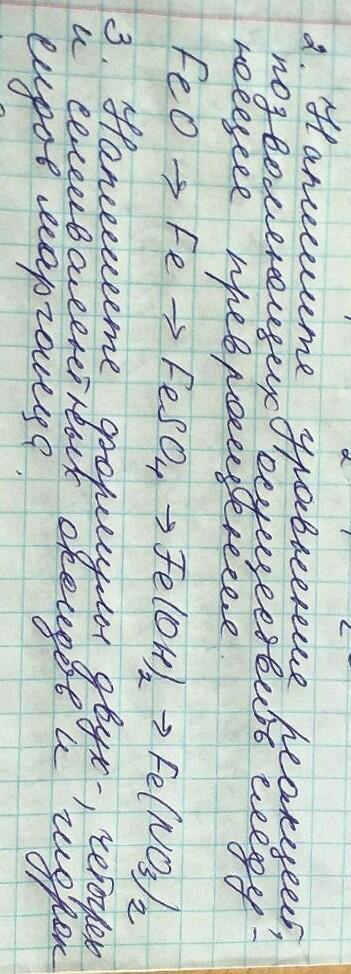 2. Напишите уравнения реакций,
позволяющих осуществить следу-
ющие превращения
FeO → Fe → FeSO₄ → Fe(OH)₂ → Fe(NO₃)₂
3. Напишите формулы двух-, четырех
и семивалентных оксидов и гидрок
сидов марганца.